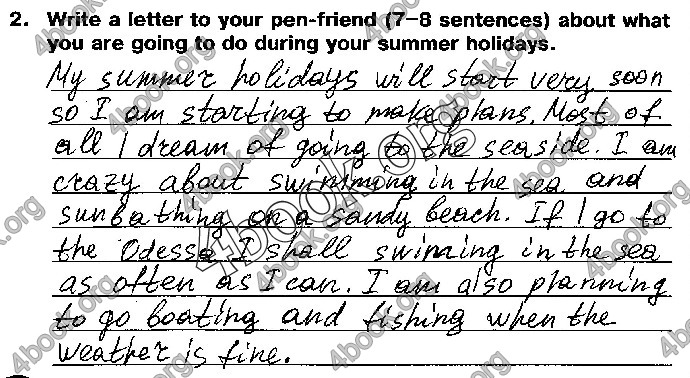 2. Write a letter to your pen-friend (7–8 sentences) about what
you are going to do during your summer holidays.
My summer holidays will start very soon
so I am starting to make plans. Most of
all I dream of going to the seaside. I am
crazy about swimming in the sea and
sunbathing on a sandy beach. If I go to
the Odessa I shall swiming in the sea
as often as I can. I am also planning
to go boating and fishing when the
weather is fine.
4book.org